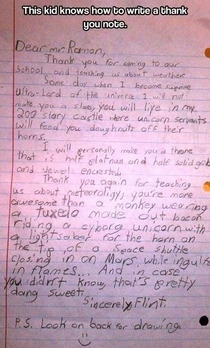 This kid knows how to write a thank
you note.
Dear Mr Ramon,
Thank you for coming to our
school and teaching us about weather.
Some day when I become supreme
Ultra-Lord of the universe I will not
make you a slave, you will live in my
200 story castle where unicorn servants
will feed you doughnuts off their
horns.
I will personally make you a throne
that is half platnum and half solid gold
and jewel encrested.
Thank you again for teaching
us about meteorology, you're more
awesome than a monkey wearing
a tuxedo made out bacon
riding a cyborg unicorn with
a lightsaber for the horn on
the tip of a space shuttle
closing in on Mars while ingulfed
in flames... And in case
you didn't know, that's pretty
dang sweet.
Sincerely, Flint
P.S. Look on back for drawing